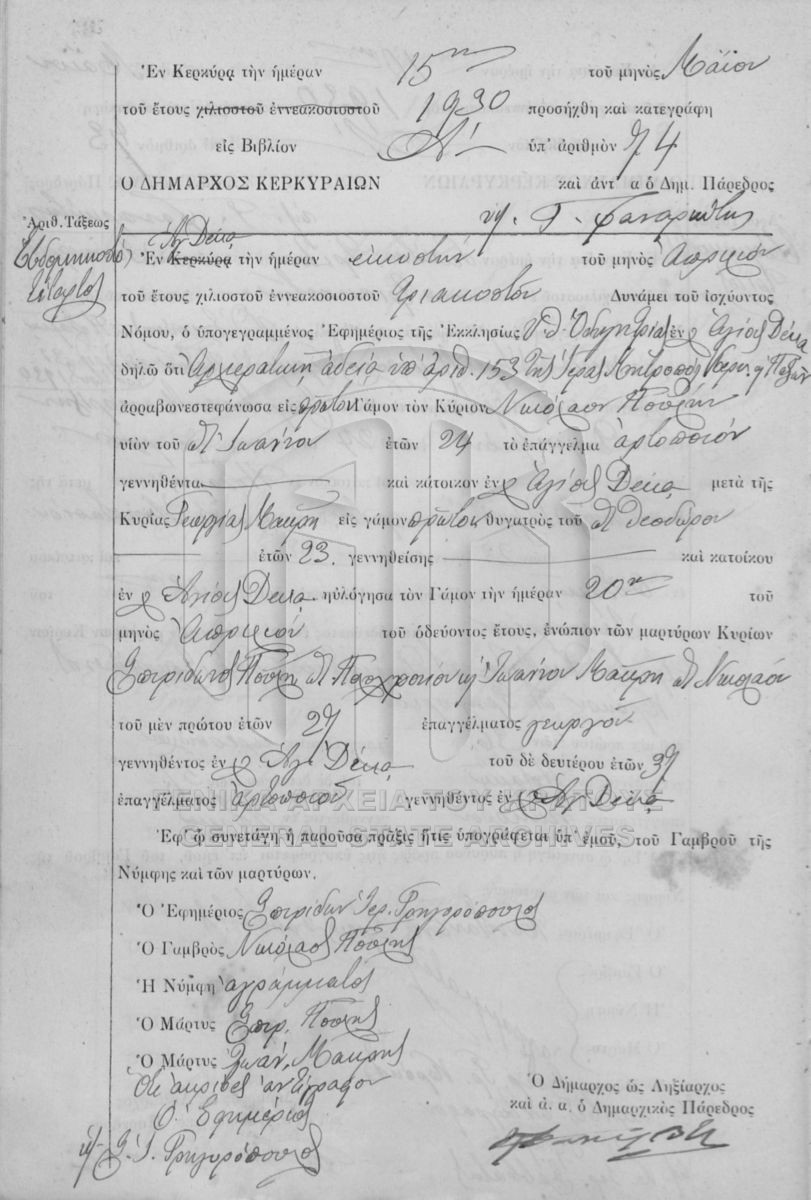 Ἐν Κερκύρᾳ τὴν ἡμέραν 15ην τοῦ μηνὸς Μάϊον
τοῦ ἔτους χιλιοστοῦ ἐννεακοσιοστοῦ 1930 προσήχθη καὶ κατεγράφη
εἰς Βιβλίον Α' ὑπ' ἀριθμὸν 74
Ο ΔΗΜΑΡΧΟΣ ΚΕΡΚΥΡΑΙΩΝ καὶ ἀντ' α ὁ Δημ. Πάρεδρος
Ἀριθ. Τάξεως
Ἑβδομηκοστό
τέταρτος
Ἁγ Δέκα
Ἐν Κερκύρᾳ τὴν ἡμέραν εἰκοστήν τοῦ μηνὸς Ἀπριλίου
τοῦ ἔτους χιλιοστοῦ ἐννεακοσιοστοῦ τριακοστοῦ Δυνάμει τοῦ ἰσχύοντος
Νόμου, ὁ ὑπογεγραμμένος Ἐφημέριος τῆς Ἐκκλησίας Ὁδηγητρίας ἐν Ἁγίοις Δέκα
δηλῶ ὅτι Ἀρχιερατικῇ ἀδείᾳ ὑπ' ἀριθ. 153 τῆς Ἱερᾶς Μητροπόλ Κερκ. & Παξῶν
ἀρραβωνεστεφάνωσα εἰς πρῶτον Γάμον τὸν Κύριον Νικόλαον
υἱὸν τοῦ Ἰωάννου ἐτῶν 24 τὸ ἐπάγγελμα ἀρτοποιόν
γεννηθέντα καὶ κάτοικον ἐν Ἁγίοις Δέκα μετὰ τῆς
Κυρίας Γεωργίας Μακρῆ εἰς γάμον πρῶτον θυγατρὸς τοῦ Θεοδώρου
ἐτῶν 23. γεννηθείσης καὶ κατοίκου
ἐν Ἁγίοις Δέκα ηὐλόγησα τὸν Γάμον τὴν ἡμέραν 20ην τοῦ
μηνὸς Ἀπριλίου τοῦ ὁδεύοντος ἔτους, ἐνώπιον τῶν μαρτύρων Κυρίων
Σπυρίδωνος Ἰωάννου Μακρῆ Νικολάου
τοῦ μὲν πρώτου ἐτῶν 27 ἐπαγγέλματος γεωργοῦ
γεννηθέντος ἐν Ἁγ Δέκα τοῦ δὲ δευτέρου ἐτῶν 37
ἐπαγγέλματος ἀρτοποιοῦ γεννηθέντος ἐν Ἁγ Δέκα
ΓΕΝΙΚΑ ΑΡΧΕΙΑ ΤΟΥ ΚΡΑΤΟΥΣ
GENERAL STATE ARCHIVES
Ἐφ' ᾧ συνετάγη ἡ παροῦσα πρᾶξις ἥτις ὑπογράφεται ὑπ' ἐμοῦ, τοῦ Γαμβροῦ τῆς
Νύμφης καὶ τῶν μαρτύρων.
Ὁ Ἐφημέριος Σπυρίδων Ἱερ. Γρηγορόπουλος
Ὁ Γαμβρὸς Νικόλαος
Ἡ Νύμφη ἀγράμματος
Ὁ Μάρτυς Σπυρ.
Ὁ Μάρτυς Ἰωάν. Μακρῆς
Ὅτι ἀκριβὲς ἀντίγραφον
Ὁ Ἐφημέριος
Γρηγορόπουλος
Ὁ Δήμαρχος ὡς Ληξίαρχος
καὶ ἀ. α. ὁ Δημαρχικὸς Πάρεδρος